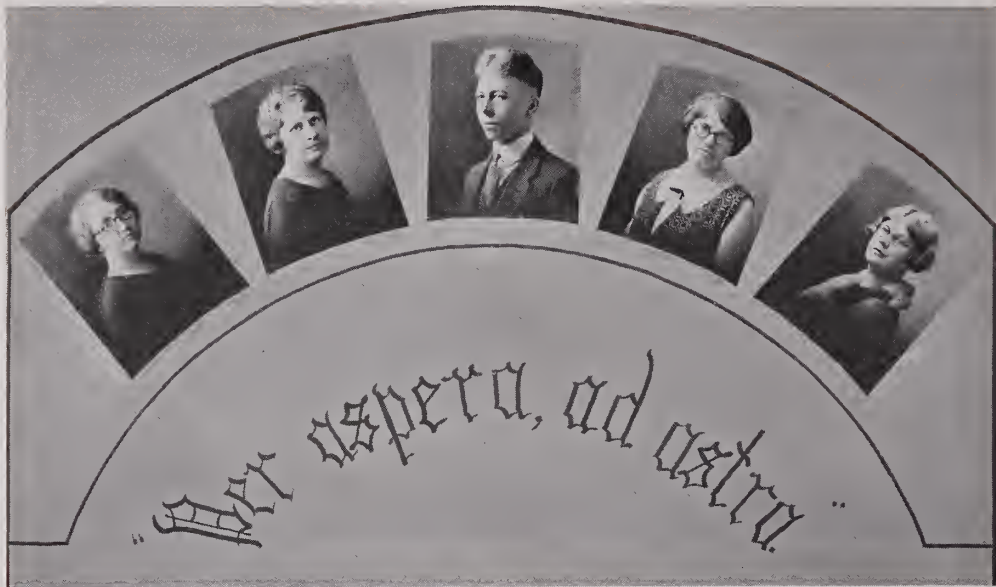 "Per aspera, ad astra."